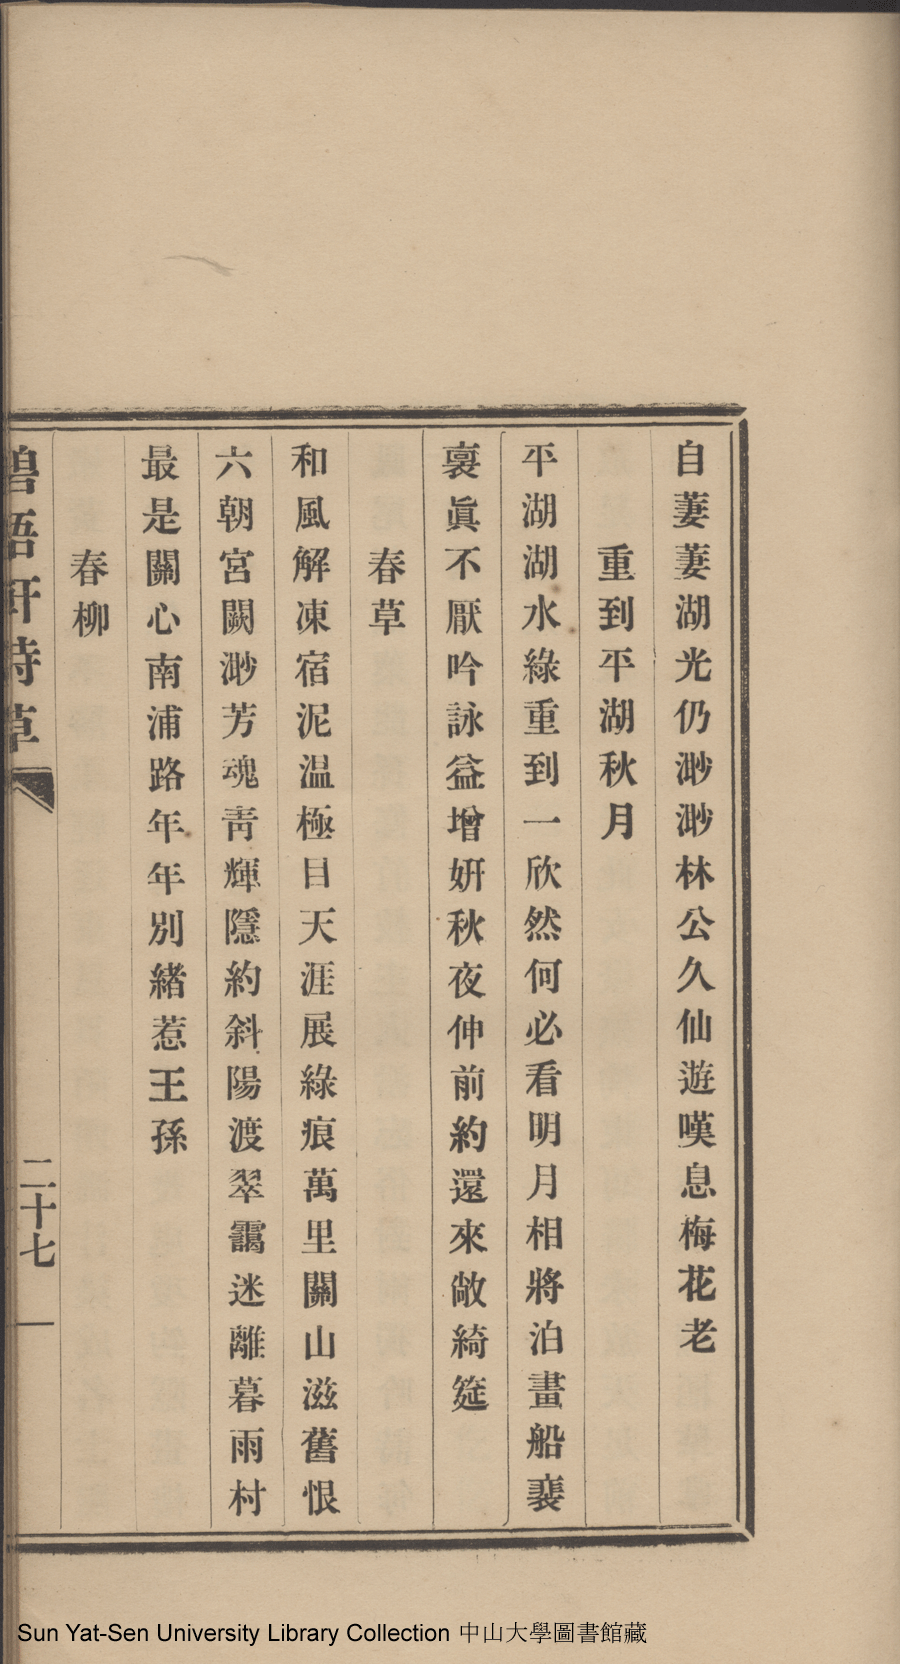 自萋萋湖光仍渺渺林公久仙遊嘆息梅花老
重到平湖秋月
平湖湖水綠重到一欣然何必看明月相將泊畫船裴
裛眞不厭吟詠益增妍秋夜仲前約還來敞綺筵
春草
和風解凍宿泥温極目天涯展綠痕萬里關山滋舊恨
六朝宮闕渺芳魂靑輝隱約斜陽渡翠靄迷離暮雨村
最是關心南浦路年年別緒惹王孫
春柳
碧梧軒詩草
二十七
Sun Yat-Sen University Library Collection 中山大學圖書館藏